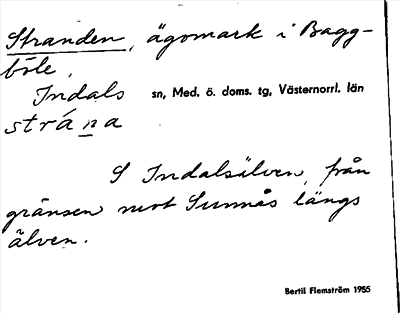 Stranden, ägomark i Bagg-
böle,
Indals sn, Med. ö. doms. tg, Västernorrl. län
strána
S Indalsälven, från
gränsen mot Sunnås längs
älven.
Bertil Flemström 1955